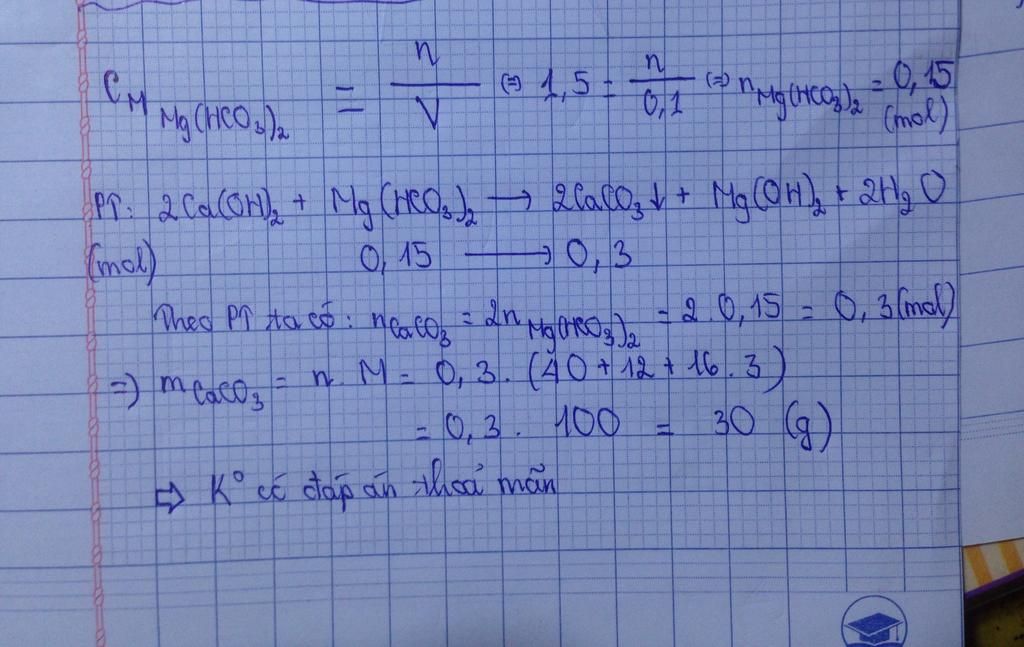 C_M Mg(HCO₃)₂ = n/V ⇔ 1,5 = n/0,1 ⇔ n Mg(HCO₃)₂ = 0,15 (mol)
PT: 2Ca(OH)₂ + Mg(HCO₃)₂ → 2CaCO₃↓ + Mg(OH)₂ + 2H₂O
(mol) 0,15 → 0,3
Theo PT ta có: nCaCO₃ = 2nMg(HCO₃)₂ = 2.0,15 = 0,3 (mol)
⇒ mCaCO₃ = n.M = 0,3.(40+12+16.3)
= 0,3. 100 = 30 (g)
⇒ K° có đáp án thoả mãn